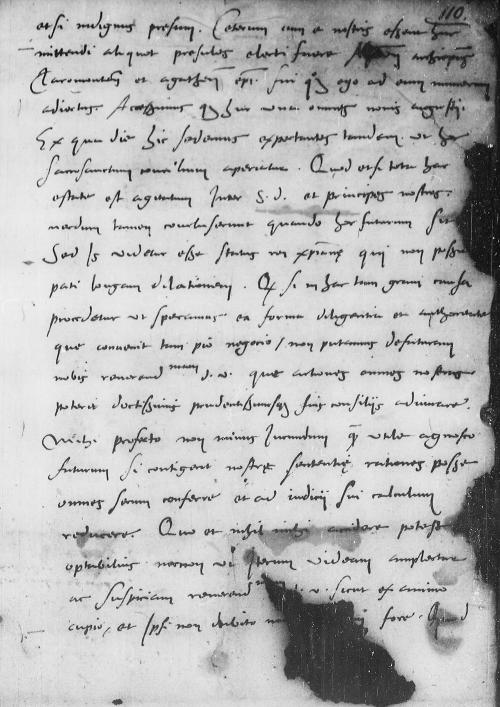 110
etsi indignus presum. Ceterum cum a nostris essent huc
mittendi aliquot presules electi fuere archiepũs
Claromonten̄ et agathen̄ epĩ. sui ego ad eum numerum
adiectus Accessimus huc una omnes nonis augusti.
Ex qua die hic sedemus expectantes tandem ut hoc
sacrosanctum concilium aperiatur. Quod etsi tota hac
estate est agentum Inter S. d. et principes nostros.
nondum tamen concluserunt quando hoc futurum sit
Sed Is videtur esse status rei xp̄ianę qui non possit
pati longam dilationem. Si in hac tam gravi causa
procedetur ut speramus ea forma diligentia et authoritate
que convenit tam pio negocio / non putamus defuturam
nobis reverend mam d. v. que actiones omnes nostras
poterit doctissimis prudentissimisq suis consiliis adiuvare.
Mihi profecto non minus Iucundum q̃ utile agnosco
futurum si contigerit nostrę sententię rationes posse
omnes secum conferre et ad iudicii sui calculum
reducere. Quo et nihil mihi accidere potest
optabilius necnon ut Iterum videam amplectar
ac suspiciam reverend d. v. sicut ex animo
cupio, et Ipse non dubito fore.